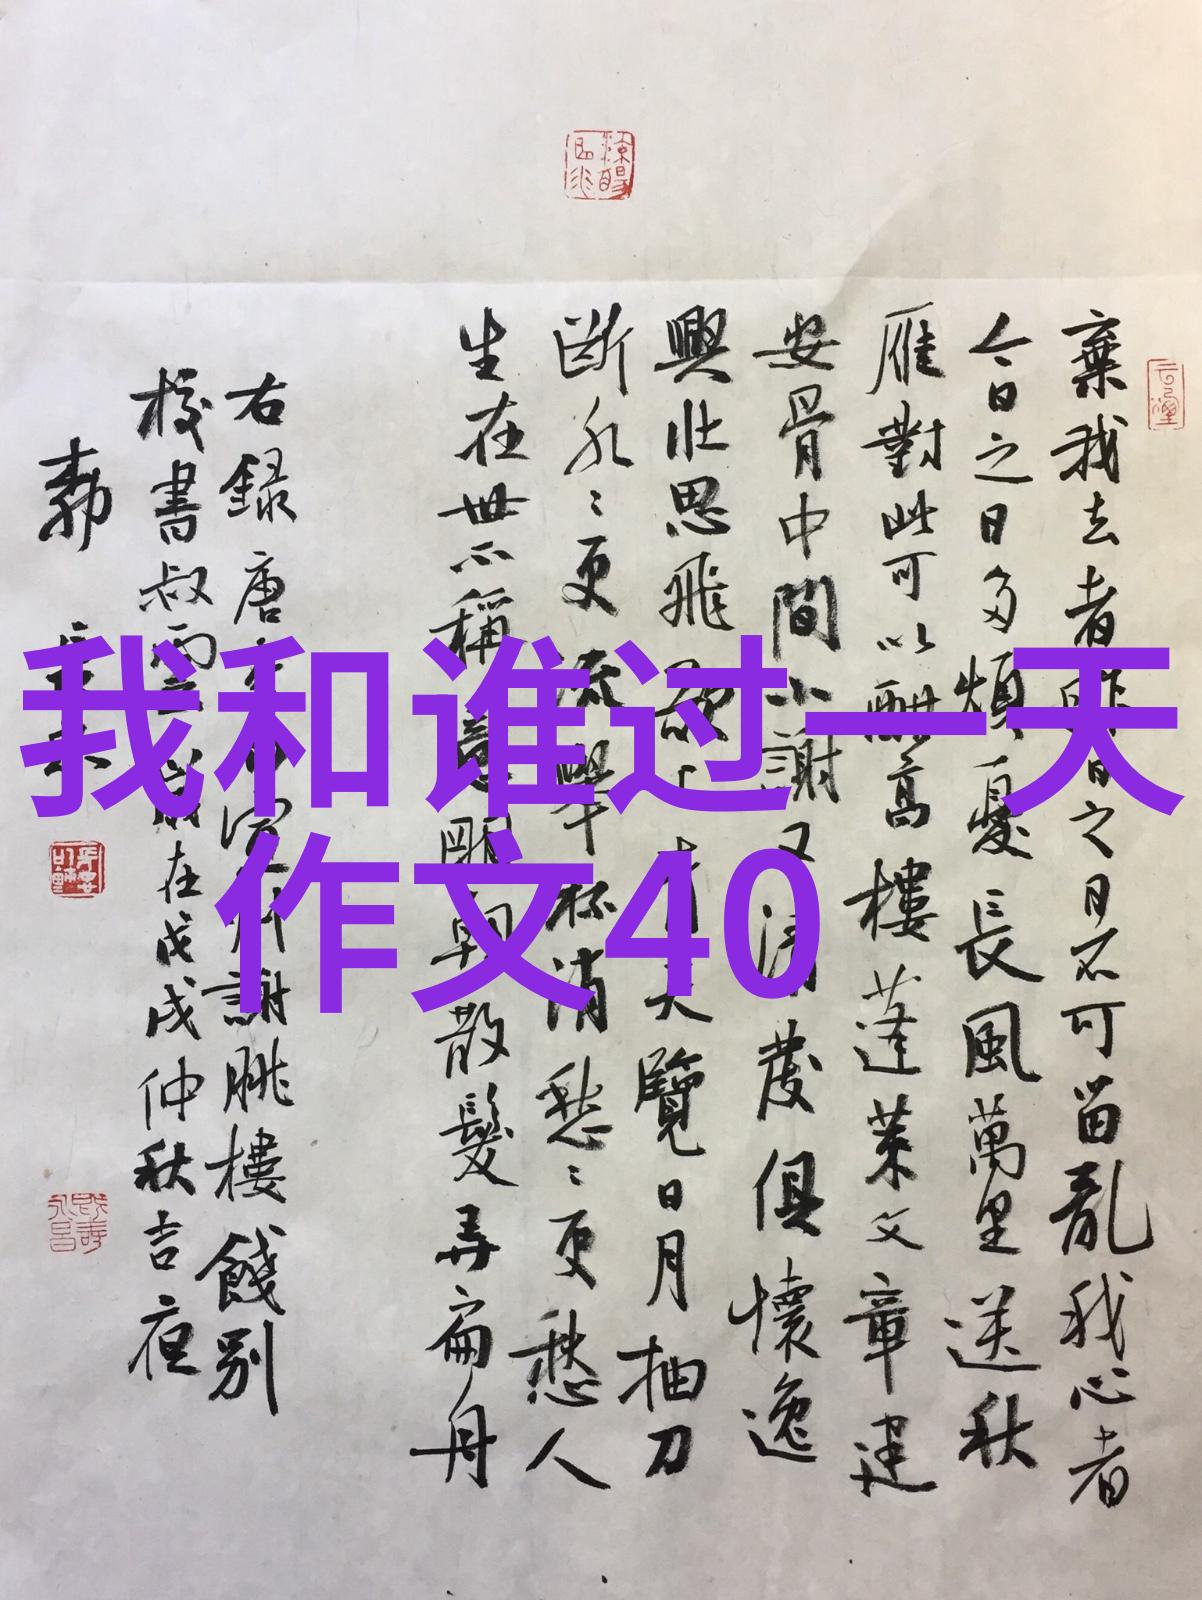 我和谁过一天
作文40
棄我去者昨日之日不可留亂我心者
今日之日多煩憂長風萬里送秋
雁對此可以酣高樓蓬萊文章建
安骨中間小謝又清發俱懷逸
興壯思飛欲上青天覽日月抽刀
斷水〻更流舉杯消愁〻更愁人
生在世不稱意明朝散髮弄扁舟
右錄唐李白宣州謝朓樓餞別
校書叔雲歲在戊戌仲秋吉夜